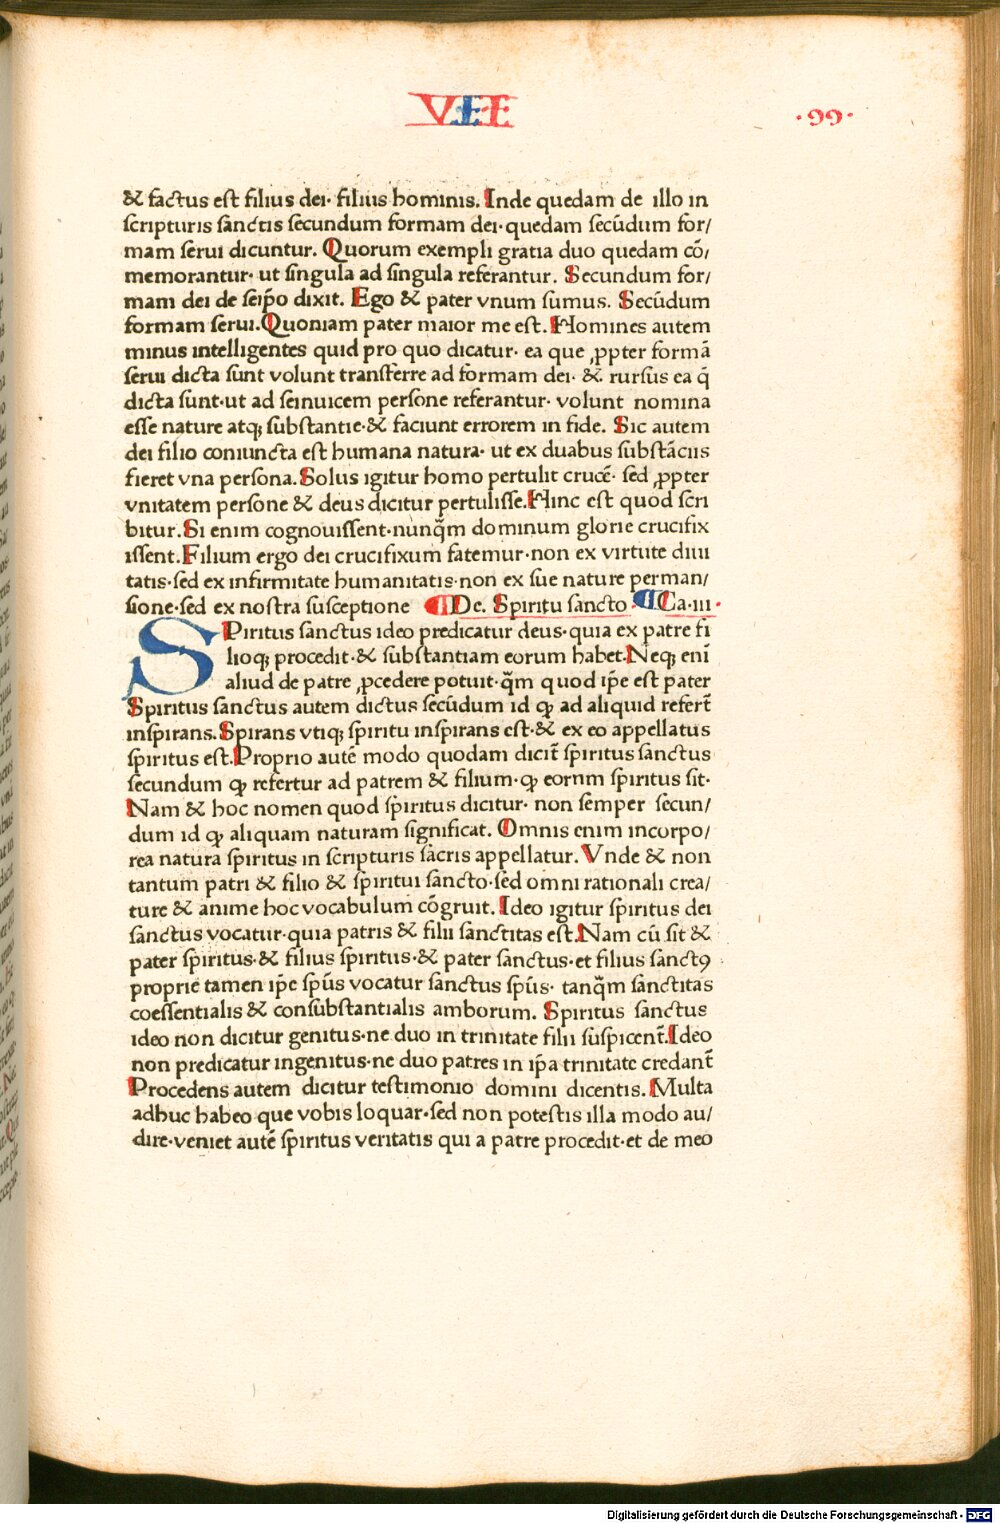 VII
·99·
& factus est filius dei· filius hominis. Inde quedam de illo in
scripturis sanctis secundum formam dei· quedam secūdum for/
mam serui dicuntur. Quorum exempli gratia duo quedam cō/
memorantur· ut singula ad singula referantur. Secundum for/
mam dei de seip̄o dixit. Ego & pater vnum sumus. Secūdum
formam serui. Quoniam pater maior me est. Homines autem
minus intelligentes quid pro quo dicatur· ea que ꝓpter formā
serui dicta sunt volunt transferre ad formam dei· & rursus ea q̄
dicta sunt·ut ad seinuicem persone referantur· volunt nomina
esse nature atqꝫ substantie·& faciunt errorem in fide. Sic autem
dei filio coniuncta est humana natura· ut ex duabus substāciis
fieret vna persona. Solus igitur homo pertulit crucē· sed ꝓpter
vnitatem persone & deus dicitur pertulisse. Hinc est quod scri
bitur. Si enim cognouissent·nunq̄m dominum glorie crucifix
issent. Filium ergo dei crucifixum fatemur·non ex virtute diui
tatis·sed ex infirmitate humanitatis·non ex sue nature perman/
sione·sed ex nostra susceptione ¶ De. Spiritu sancto ¶ Ca·iii·
SPiritus sanctus ideo predicatur deus·quia ex patre fi
lioqꝫ procedit·& substantiam eorum habet. Neqꝫ enī
aliud de patre ꝓcedere potuit·q̄m quod ip̄e est pater
Spiritus sanctus autem dictus secūdum id ꝙ ad aliquid refert̄
inspirans. Spirans vtiqꝫ spiritu inspirans est·& ex eo appellatus
spiritus est. Proprio autē modo quodam dicit̄ spiritus sanctus
secundum ꝙ refertur ad patrem & filium·ꝙ eorum spiritus sit·
Nam & hoc nomen quod spiritus dicitur· non semper secun/
dum id ꝙ aliquam naturam significat. Omnis enim incorpo/
rea natura spiritus in scripturis sacris appellatur. Vnde & non
tantum patri & filio & spiritui sancto·sed omni rationali crea/
ture & anime hoc vocabulum cōgruit. Ideo igitur spiritus dei
sanctus vocatur·quia patris & filii sanctitas est. Nam cū sit &
pater spiritus·& filius spiritus·& pater sanctus·et filius sanctꝯ
proprie tamen ip̄e sp̄us vocatur sanctus sp̄us· tanq̄m sanctitas
coessentialis & consubstantialis amborum. Spiritus sanctus
ideo non dicitur genitus·ne duo in trinitate filii suspicent̄. Ideo
non predicatur ingenitus·ne duo patres in ip̄a trinitate credant̄
Procedens autem dicitur testimonio domini dicentis. Multa
adhuc habeo que vobis loquar·sed non potestis illa modo au/
dire·veniet autē spiritus veritatis qui a patre procedit·et de meo
Digitalisierung gefördert durch die Deutsche Forschungsgemeinschaft - DFG